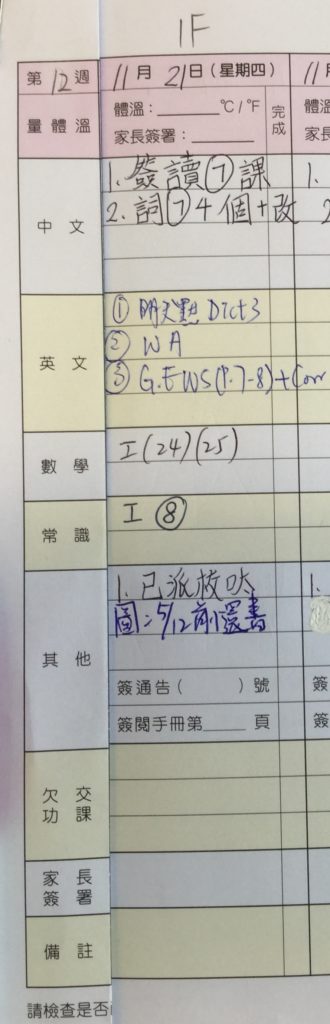 1F
第12週 11月21日(星期四) 11月
量體溫 體溫：______℃/℉ 完成
家長簽署：______
中文 1. 簽讀⑦課
2. 詞⑦4個+改
英文 ① 明交默Dict3
② WA
③ G.E WS(P.7-8)+Corr
數學 I(24)(25)
常識 I ⑧
其他 1. 已派校呔
圖：5/12前還書
簽通告(　　)號
簽閱手冊第____頁
欠交功課
家長簽署
備註
請檢查是否